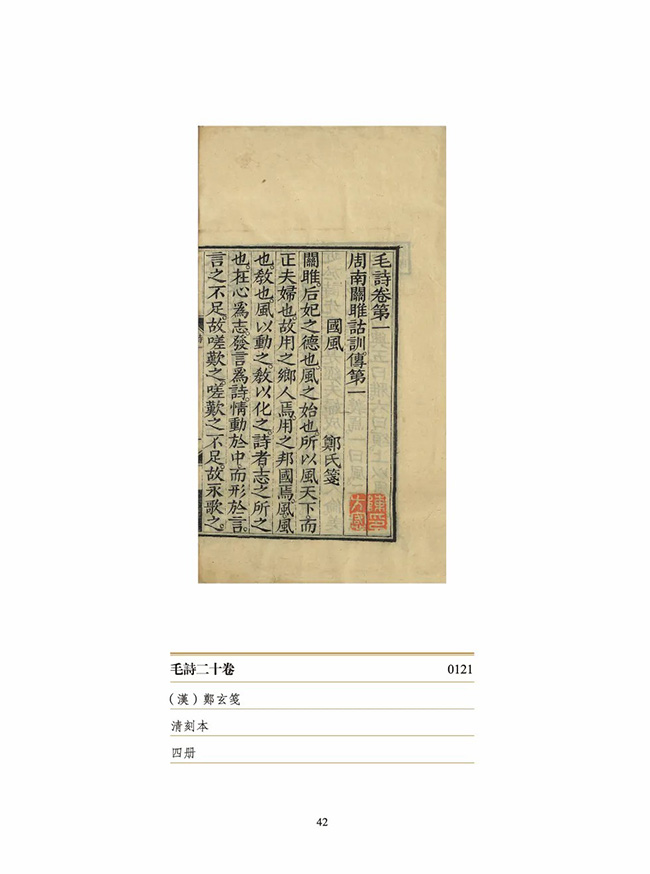 毛詩卷第一
周南關雎詁訓傳第一
國風　鄭氏箋
關雎后妃之德也風之始也所以風天下而
正夫婦也故用之鄉人焉用之邦國焉風風
也教也風以動之教以化之詩者志之所之
也在心為志發言為詩情動於中而形於言
言之不足故嗟歎之嗟歎之不足故永歌之
毛詩二十卷 0121
（漢）鄭玄箋
清刻本
四册
42